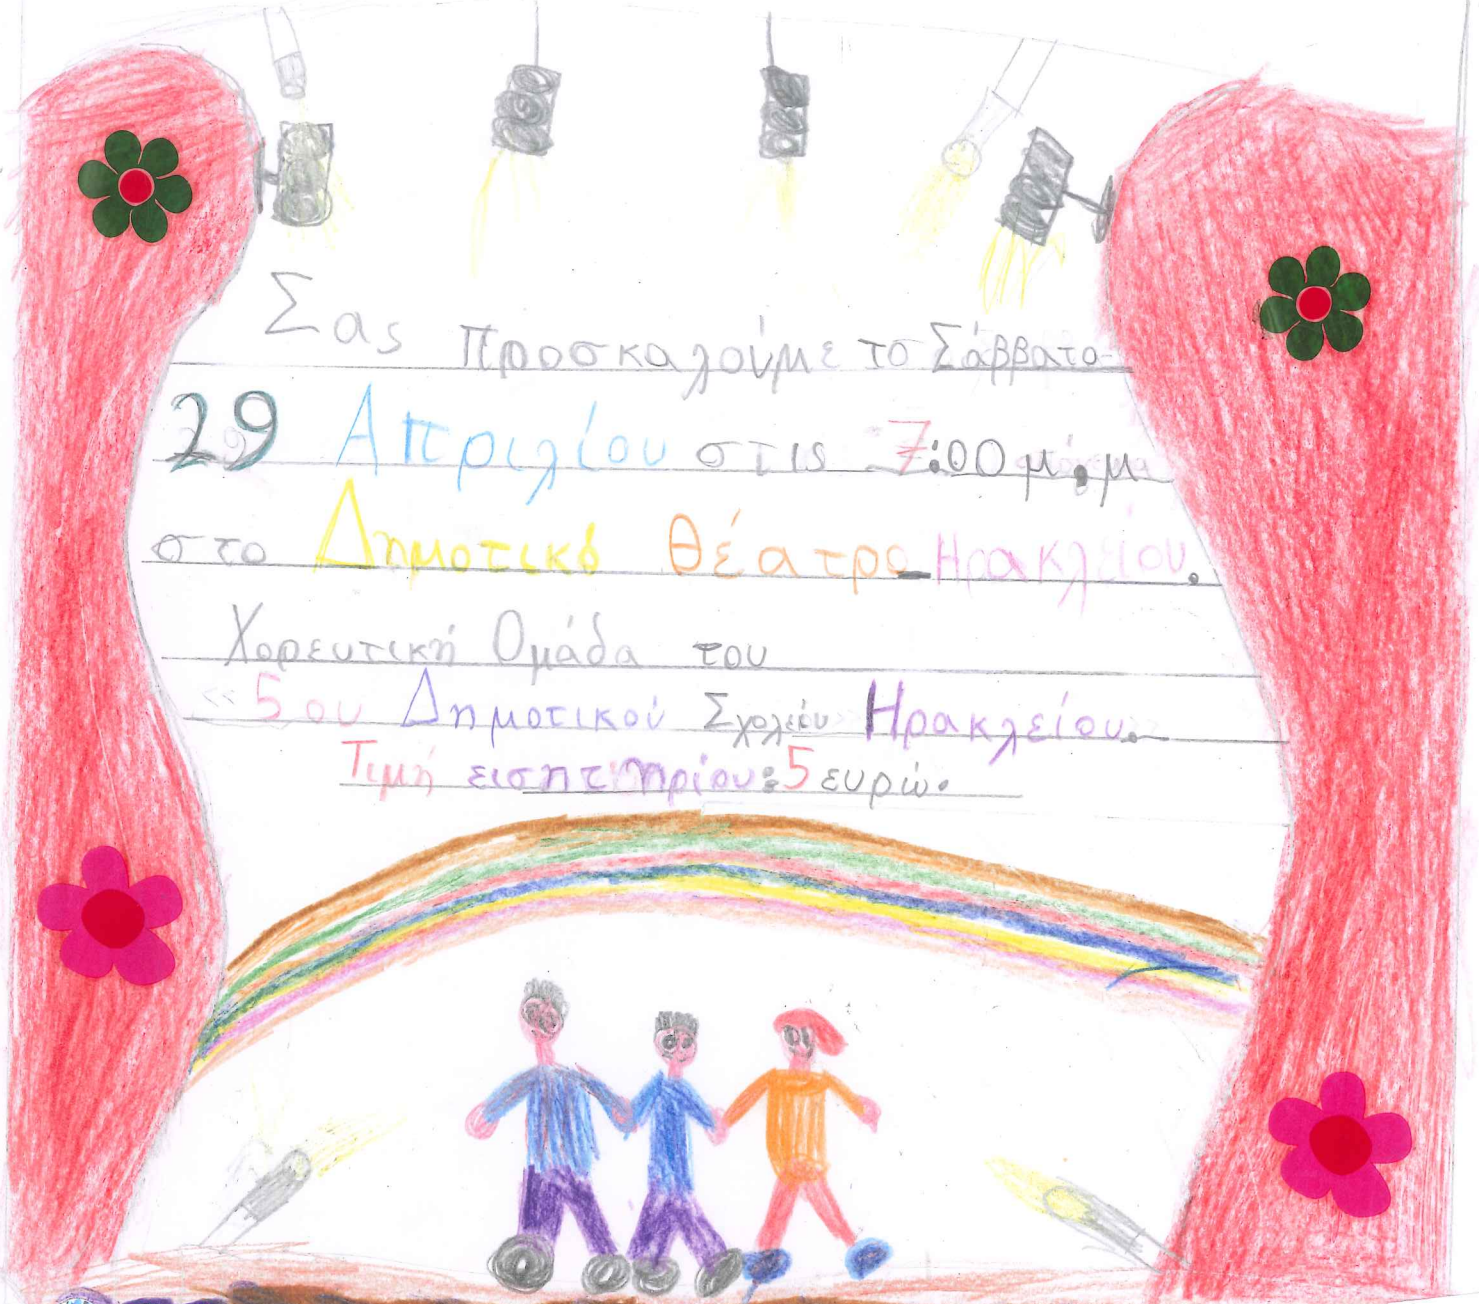 Σας προσκαλούμε το Σάββατο
29 Απριλίου στις 7:00 μ.μ
στο Δημοτικό Θέατρο Ηρακλείου.
Χορευτική Ομάδα του
«5ου Δημοτικού Σχολείου Ηρακλείου.»
Τιμή εισητηρίου: 5 ευρώ.